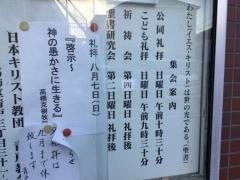 わたし(イエス・キリスト)は世の光である。(聖書)
集会案内
公同礼拝 日曜日 午前十時三十分
こども礼拝 日曜日 午前九時三十分
祈祷会 第四日曜日 礼拝後
聖書研究会 第二日曜日 礼拝後
礼拝 八月七日(日)
『啓示〜
神の愚かさに生きる』
高橋克樹牧師
日本キリスト教団